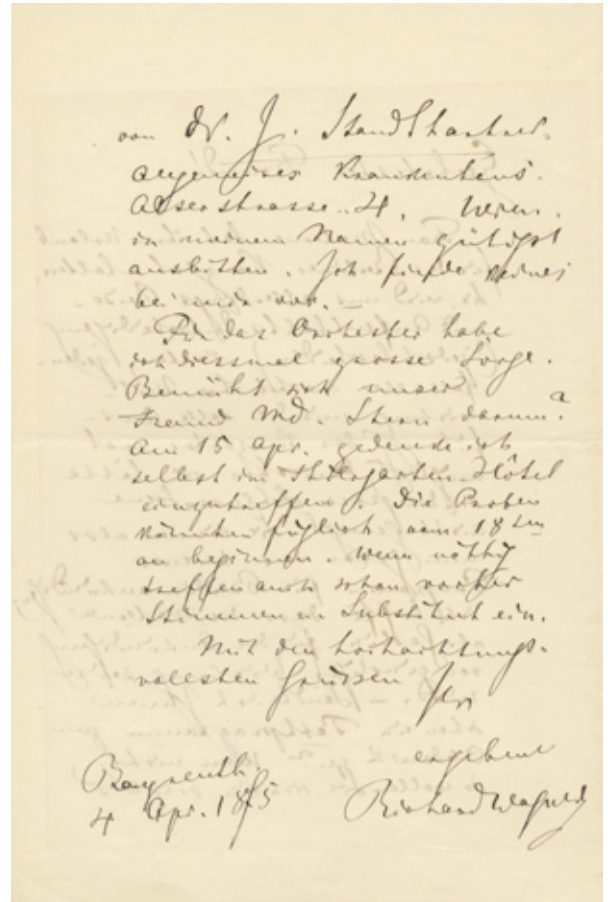 von Dr. J. Standthartner.
allgemeines Krankenhaus.
Alserstrasse. 4. Wien.
in meinem Namen gütigst
ausbitten. Ich finde keines
bei mir vor. —
Für das Orchester habe
ich diessmal grosse Sorge.
Bemüht sich unser
Freund Md. Stern darum?
Am 15 Apr. gedenke ich
selbst im Thiergarten-Hôtel
einzutreffen. Die Proben
könnten füglich vom 18ten
an beginnen. Wenn nöthig
treffen auch schon vorher
Stimmen u. Substitut ein.
Mit den hochachtungs-
vollesten Grüssen Ihr
ergebener
Bayreuth
4 Apr. 1875
Richard Wagner